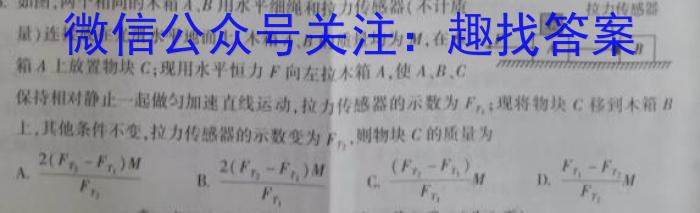 如图,两个相同的木箱A、B用水平细绳和拉力传感器(不计质
拉力传感器
量)连
微信公众号关注：趣找答案
为M,在
B
箱A上放置物块C;现用水平恒力F向左拉木箱A,使A、B、C
保持相对静止一起做匀加速直线运动,拉力传感器的示数为F_{T₁};现将物块C移到木箱B
上,其他条件不变,拉力传感器的示数变为F_{T₂},则物块C的质量为
A. 2(F_{T₂}-F_{T₁})M / F_{T₂} B. 2(F_{T₂}-F_{T₁})M / F_{T₁} C. (F_{T₂}-F_{T₁}) / F_{T₁} M D. F_{T₁}-F_{T₂} / F_{T₂} M